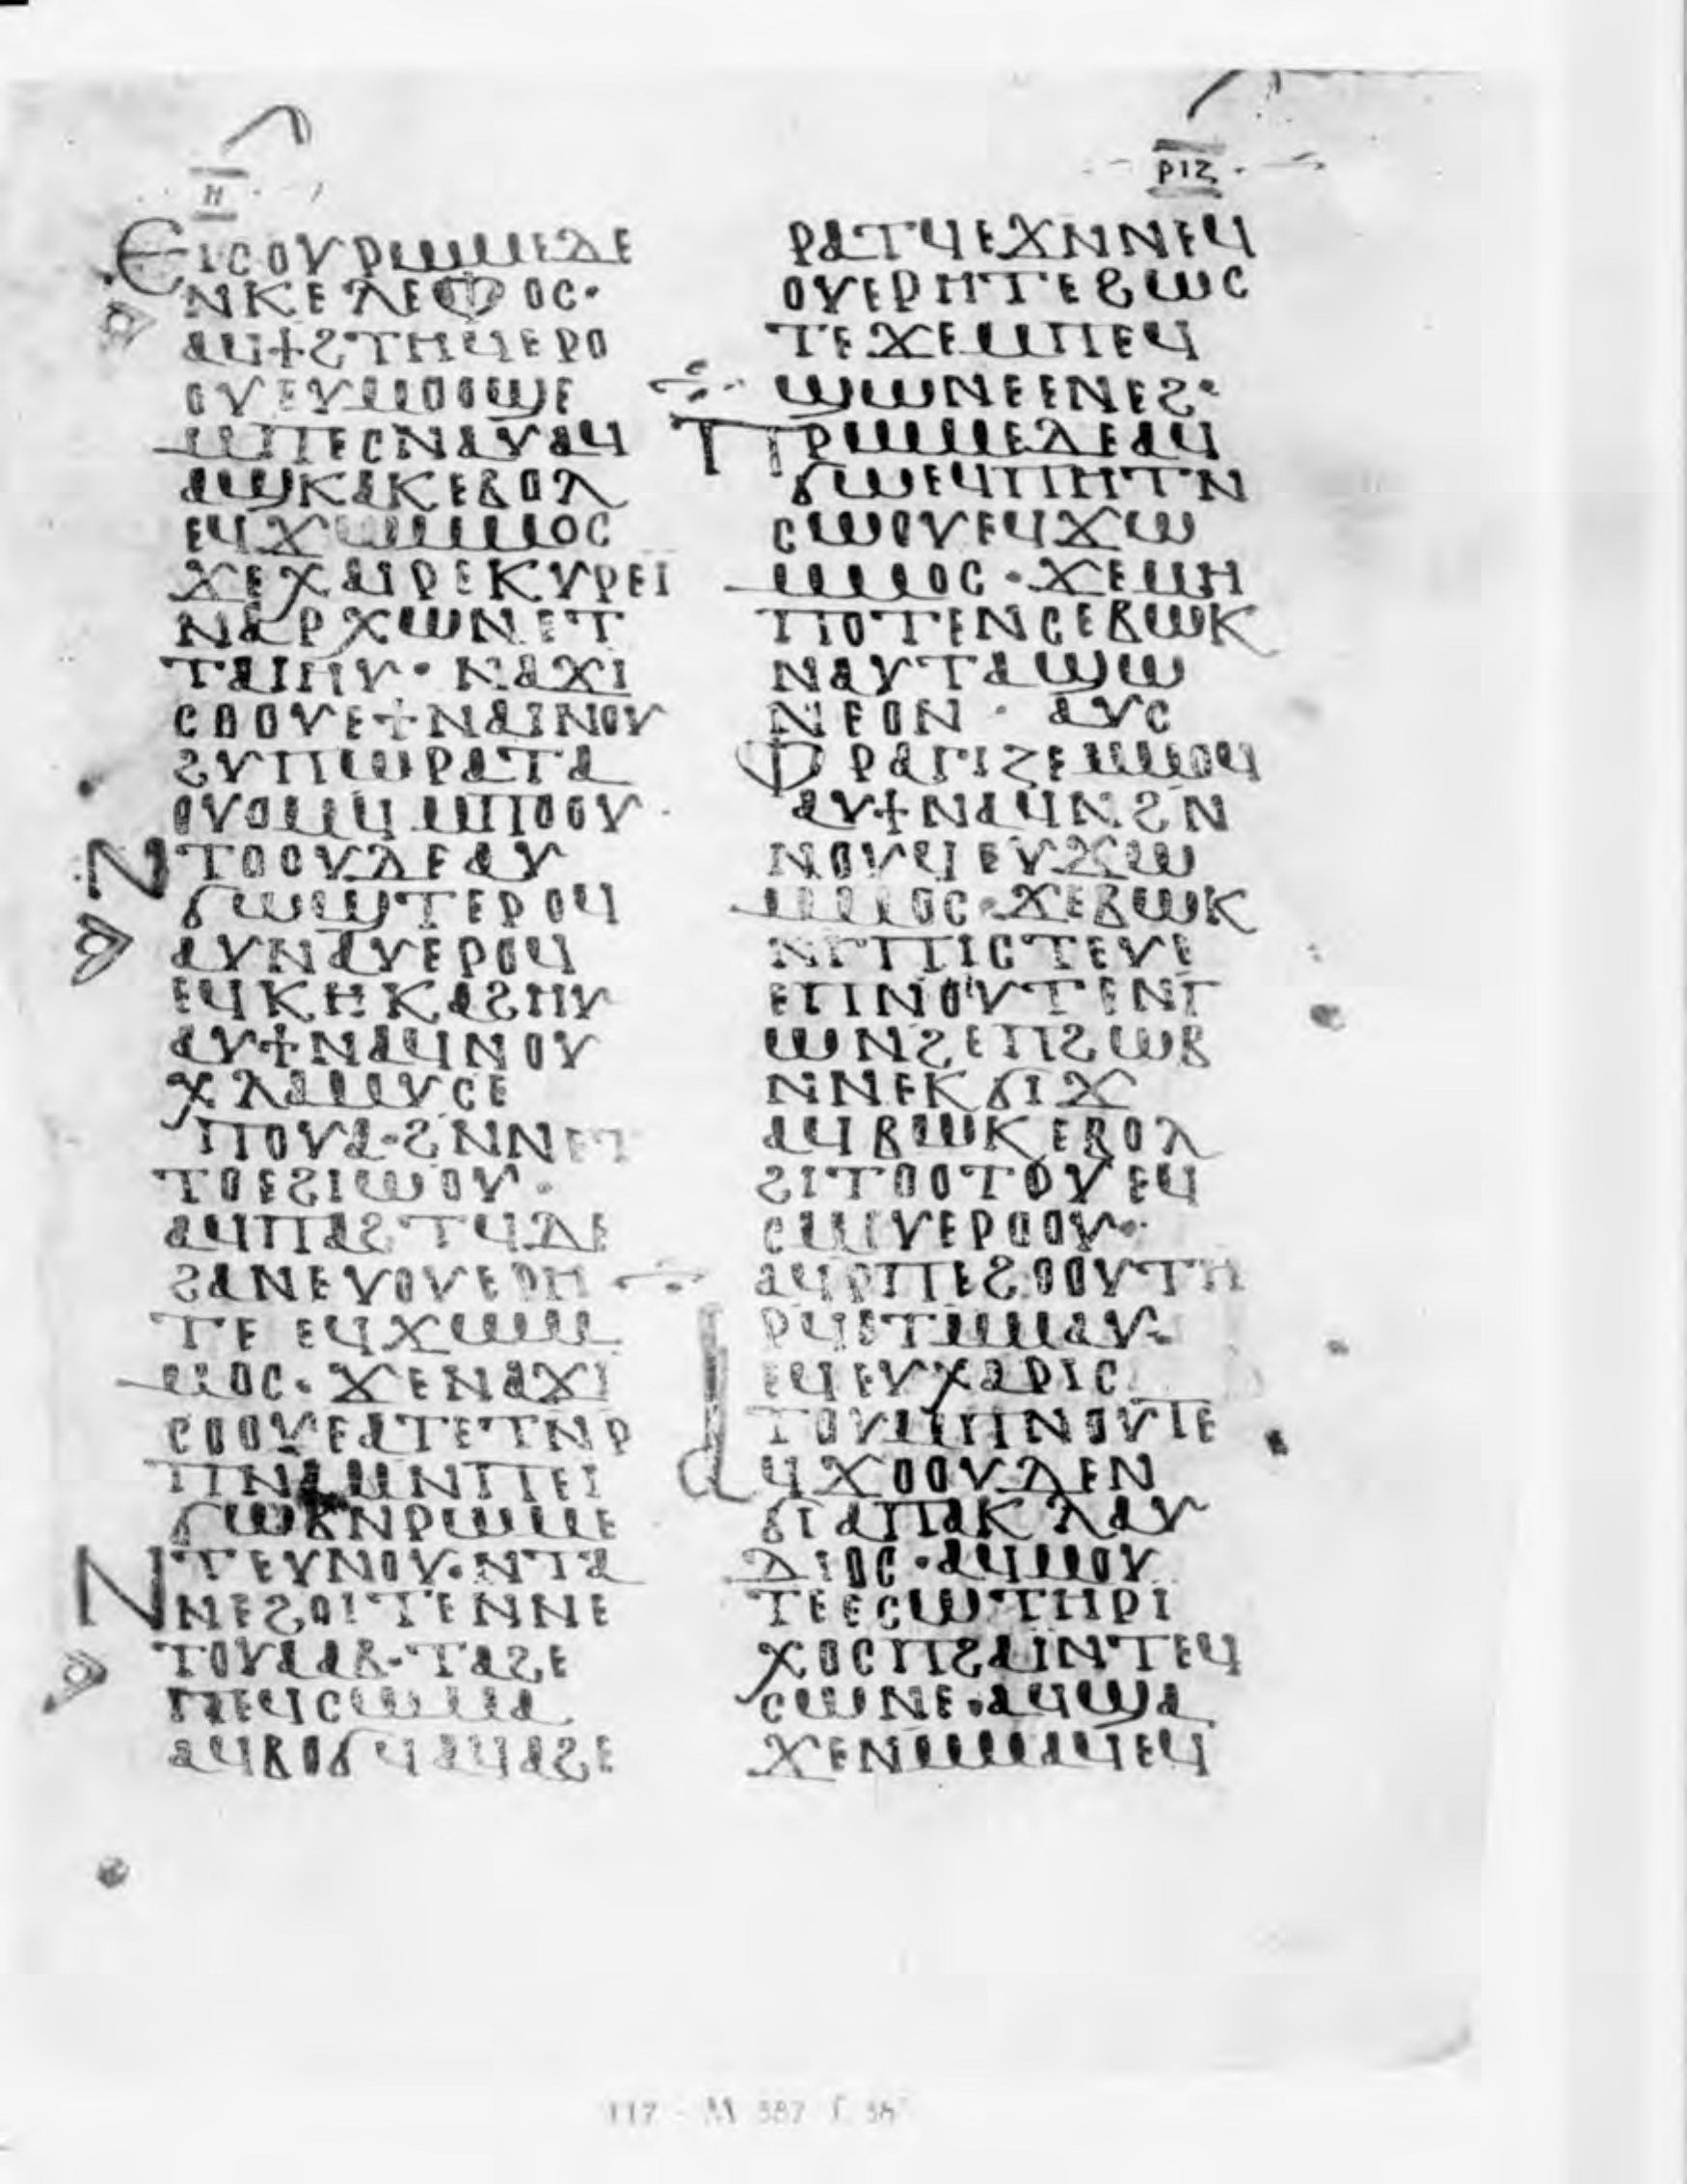 ⲏ
ⲣⲓⲍ
ⲉⲓⲥⲟⲩⲣⲱⲙⲉⲇⲉ
ⲛⲕⲉⲗⲉⲫⲟⲥ·
ⲁϥϯϩⲧⲏϥⲉⲣⲟ
ⲟⲩⲉⲩⲙⲟⲟϣⲉ
ⲙⲡⲉⲥⲛⲁⲩⲁϥ
ⲁϣⲕⲁⲕⲉⲃⲟⲗ
ⲉϥϫⲱⲙⲙⲟⲥ
ϫⲉⲭⲁⲓⲣⲉⲕⲩⲣⲉⲓ
ⲛⲁⲣⲭⲱⲛⲉⲧ
ⲧⲁⲓⲏⲩ· ⲛⲁϫⲓ
ⲥⲟⲟⲩⲉϯⲛⲁⲓⲛⲟⲩ
ϩⲩⲡⲱⲣⲁⲧⲁ
ⲟⲩⲟⲙϥ ⲙⲡⲟⲟⲩ
ⲛⲧⲟⲟⲩⲇⲉⲁⲩ
ϭⲱϣⲧⲉⲣⲟϥ
ⲁⲩⲛⲁⲩⲉⲣⲟϥ
ⲉϥⲕⲏⲕⲁϩⲏⲩ
ⲁⲩϯⲛⲁϥⲛⲟⲩ
ⲭⲗⲁⲙⲩⲥⲉ
ⲡⲟⲩⲁ·ϩⲛⲛⲉⲧ
ⲧⲟⲉϩⲓⲱⲟⲩ·
ⲁϥⲡⲁϩⲧϥⲇⲉ
ϩⲁⲛⲉⲩⲟⲩⲉⲣⲏ
ⲧⲉ ⲉϥϫⲱⲙ
ⲙⲟⲥ· ϫⲉⲛⲁϫⲓ
ⲥⲟⲟⲩⲉⲁⲧⲉⲧⲛⲣ
ⲡⲛⲁⲙⲛⲡⲉⲓ
ϭⲱⲃⲛⲣⲱⲙⲉ
ⲛⲧⲉⲩⲛⲟⲩ·ⲛⲧⲁ
ⲛⲉϩⲟⲓⲧⲉⲛⲛⲉ
ⲧⲟⲩⲁⲁⲃ·ⲧⲁϩⲉ
ⲡⲉϥⲥⲱⲙⲁ
ⲁϥⲃⲟϭϥⲁϥⲁϩⲉ
ⲣⲁⲧϥⲉϫⲛⲛⲉϥ
ⲟⲩⲉⲣⲏⲧⲉϩⲱⲥ
ⲧⲉϫⲉⲙⲡⲉϥ
ϣⲱⲛⲉⲉⲛⲉϩ·
ⲡⲣⲱⲙⲉⲇⲉⲁϥ
ϭⲱⲉϥⲡⲏⲧⲛ
ⲥⲱⲟⲩⲉϥϫⲱ
ⲙⲙⲟⲥ·ϫⲉⲙⲏ
ⲡⲟⲧⲉⲛⲥⲉⲃⲱⲕ
ⲛⲁⲩⲧⲁϣⲱ
ⲛⲉⲟⲛ· ⲁⲩⲥ
ⲫⲣⲁⲅⲓⲍⲉⲙⲙⲟϥ
ⲁⲩϯⲛⲁϥⲛϩⲛ
ⲛⲟⲩϥⲉⲩϫⲱ
ⲙⲙⲟⲥ·ϫⲉⲃⲱⲕ
ⲛⲅⲡⲓⲥⲧⲉⲩⲉ
ⲉⲡⲛⲟⲩⲧⲉⲛⲅ
ⲱⲛϩⲉⲡϩⲱⲃ
ⲛⲛⲉⲕϭⲓϫ
ⲁϥⲃⲱⲕⲉⲃⲟⲗ
ϩⲓⲧⲟⲟⲧⲟⲩⲉϥ
ⲥⲙⲟⲩⲉⲣⲟⲟⲩ·
ⲁϥⲣⲡⲉϩⲟⲟⲩⲧⲏ
ⲣϥⲉⲧⲙⲙⲁⲩ·
ⲉϥⲉⲩⲭⲁⲣⲓⲥ
ⲧⲟⲩⲙⲡⲛⲟⲩⲧⲉ
ⲁϥϫⲟⲟⲩⲇⲉⲛ
ϭⲓⲁⲡⲁⲕⲗⲁⲩ
ⲇⲓⲟⲥ·ⲁϥⲙⲟⲩ
ⲧⲉⲉⲥⲱⲧⲏⲣⲓ
ⲭⲟⲥⲡϩⲁⲓⲛⲧⲉϥ
ⲥⲱⲛⲉ·ⲁϥϣⲁ
ϫⲉⲛⲙⲙⲁϥⲉϥ
117 - M 587 f. 58